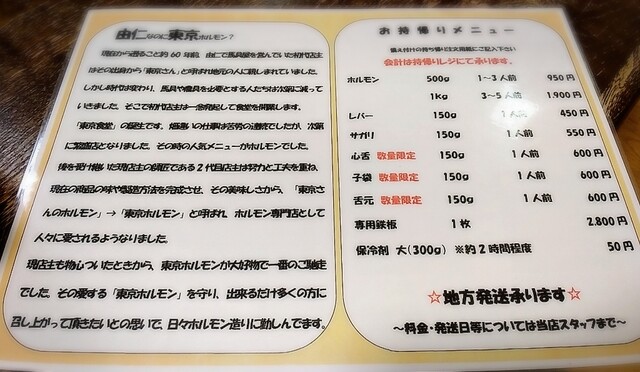 由仁なのに東京ホルモン?
現在から遡ること約60年前、由仁で馬具屋を営んでいた初代店主
はその出身から「東京さん」と呼ばれ地元の人に親しまれていました。
しかし時代は変わり、馬具や農具を必要とする人たちは次第に減って
いきました。そこで初代店主は一念発起して食堂を開業します。
「東京食堂」の誕生です。畑違いの仕事は苦労の連続でしたが、次第
に繁盛店となりました。その時の人気メニューがホルモンでした。
後を受け継いだ現店主の師匠である2代目店主は努力と工夫を重ね、
現在の商品の味や製造方法を完成させ、その美味しさから、「東京さ
んのホルモン」→「東京ホルモン」と呼ばれ、ホルモン専門店として
人々に愛されるようなりました。
現店主も物心ついたときから、東京ホルモンが大好物で一番のご馳走
でした。その愛する「東京ホルモン」を守り、出来るだけ多くの方に
召し上がって頂きたいとの思いで、日々ホルモン造りに勤しんでます。
お持帰りメニュー
備え付けの持ち帰り注文用紙にご記入下さい
会計は持帰りレジにて承ります。
ホルモン 500g 1~3人前 950円
1Kg 3~5人前 1,900円
レバー 150g 1人前 450円
サガリ 150g 1人前 550円
心舌 数量限定 150g 1人前 600円
子袋 数量限定 150g 1人前 600円
舌元 数量限定 150g 1人前 600円
専用鉄板 1枚 2,800円
保冷剤 大(300g) ※約2時間程度 50円
☆地方発送承ります☆
~料金・発送日等については当店スタッフまで~